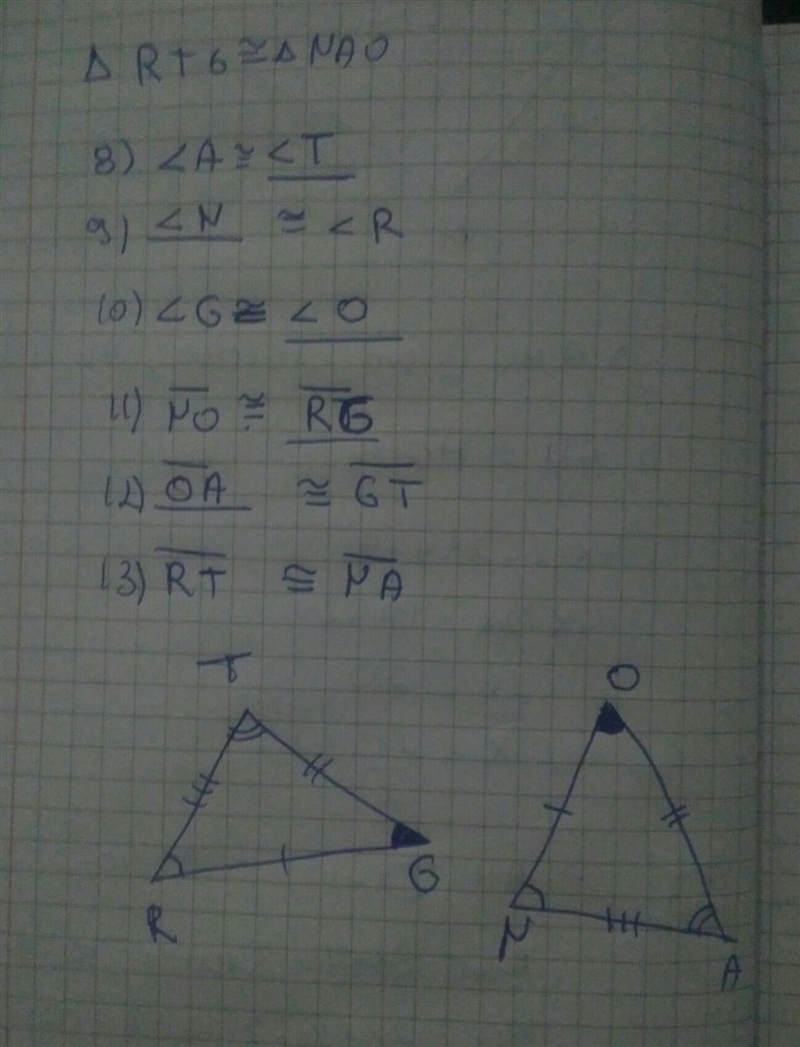 Δ RTG ≅ Δ NAO
8) ∠A ≅ ∠T
9) ∠N ≅ ∠R
10) ∠G ≅ ∠O
11) N̅O̅ ≅ R̅G̅
12) O̅A̅ ≅ G̅T̅
13) R̅T̅ ≅ N̅A̅
T
O
R
G
N
A